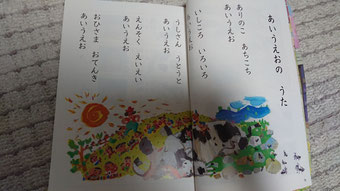 あいうえおの　うた
ありのこ　あちこち
あいうえお
いしころ　いろいろ
あいうえお
うしさん　うとうと
あいうえお
えんそく　えいえい
あいうえお
おひさま　おてんき
あいうえお